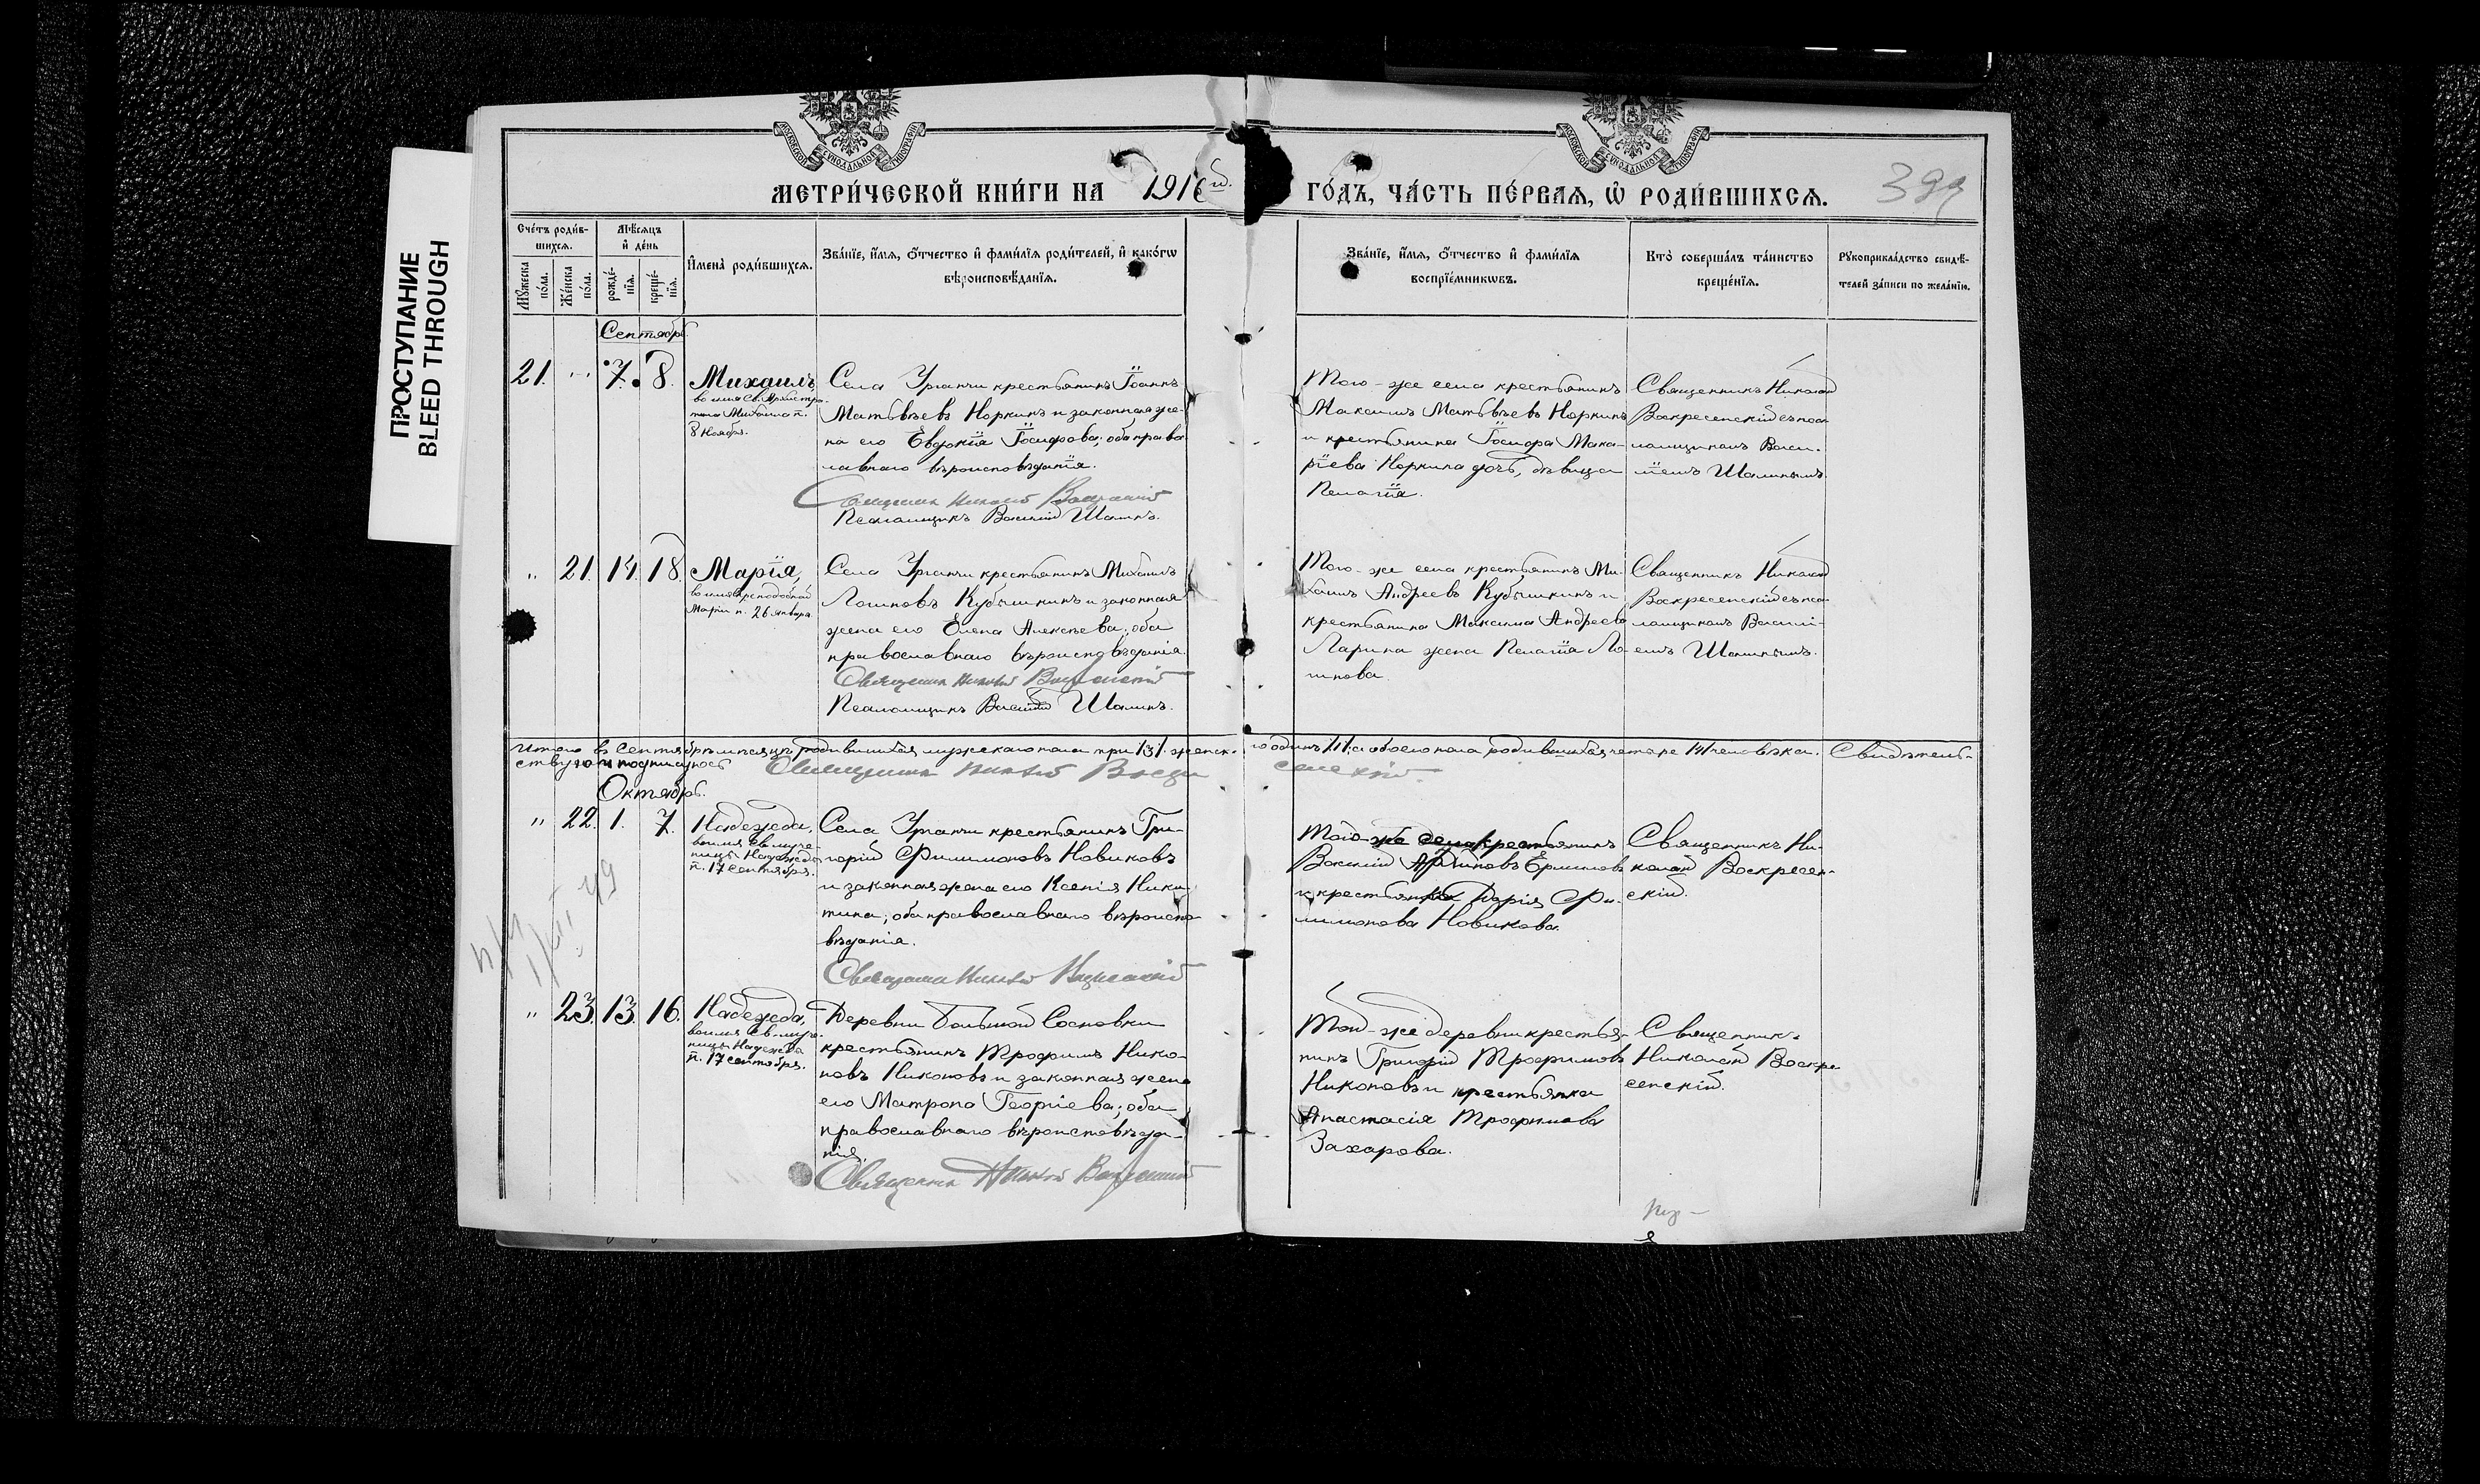 ПРОСТУПАНИЕ
BLEED THROUGH
МОСКОВСКОЙ СѴНОДАЛЬНОЙ ТИПОГРАФІИ
МОСКОВСКОЙ СѴНОДАЛЬНОЙ ТИПОГРАФІИ
МЕТРИ́ЧЕСКОЙ КНИ́ГИ НА 1916й. ГО́ДЪ, ЧА́СТЬ ПЕ́РВАЯ, Ѽ РОДИ́ВШИХСЯ.
Сче́тъ роди́в-
шихся.
Мꙋ́жеска по́ла.
Же́нска по́ла.
Мѣ́сяцъ и҆ де́нь
рожде́-
нїя.
креще́-
нїя.
И҆мена̀ роди́вшихся.
Зва́нїе, и҆́мя, ѻ҆́тчество и҆ фами́лїя роди́телей, и҆ како́гѡ
вѣроисповѣ́данїя.
Зва́нїе, и҆́мя, ѻ҆́тчество и҆ фами́лїя
воспрїе́мникѡвъ.
Кто̀ соверша́лъ та́инство
креще́нїя.
Рꙋкоприкла́дство свидѣ́-
телей за́писи по жела́нїю.
Сентябрь.
21. 7. 8.
Михаилъ,
во имя Св. Архистра-
тига Михаила п.
8 Ноября.
Села Урганчи крестьянинъ Іоаннъ
Матвѣевъ Норкинъ и законная же-
на его Евдокія Іосифова; оба право
славнаго вѣроисповѣданія.
Священникъ Николай Воскресенскій
Псаломщикъ Василій Шалинъ.
Того-же села крестьянинъ
Максимъ Матвѣевъ Норкинъ
и крестьянина Іосифа Мака-
ріева Норкина дочь, дѣвица
Пелагія.
Священникъ Николай
Воскресенскій съ пса-
ломщикомъ Васи-
ліемъ Шалинымъ.
" 21. 14 18.
Марія,
во имя Преподобной
Маріи п. 26 января
Села Урганчи крестьянинъ Михаилъ
Логиновъ Кубышкинъ и законная
жена его Елена Алексѣева; оба
православнаго вѣроисповѣданія.
Священникъ Николай Воскресенскій
Псаломщикъ Василій Шалинъ.
Того-же села крестьянинъ Ми-
хаилъ Андреевъ Кубышкинъ и
крестьянина Максима Андреева
Ларина жена Пелагія Ло-
гинова.
Священникъ Николай
Воскресенскій съ пса-
ломщикомъ Василі-
емъ Шалинымъ.
Итого въ Сентябрѣ мѣсяцѣ родившихся мужескаго пола три /3/ женска-го одинъ /1/, а обоего пола родившихся четыре /4/ человѣка. Свидѣтель-
ствую и подписуюсь Священникъ Николай Воскресенскій.
Октябрь.
" 22. 1. 7.
Надежда,
во имя Св. муче-
ницы Надежды
п. 17 сентября.
Села Урганчи крестьянинъ Гри-
горій Филимоновъ Новиковъ
и законная жена его Ксенія Ники-
тина; оба православнаго вѣроиспо-
вѣданія.
Священникъ Николай Воскресенскій
Того-же села крестьянинъ
Василій Ермиловъ
и крестьянка Дарія Фи-
лимонова Новикова.
Священникъ Ни-
колай Воскресен-
скій.
" 23. 13. 16.
Надежда,
во имя Св. муче-
ницы Надежды
п. 17 сентября.
Деревни Большой Сосновки
крестьянинъ Трофимъ Нико-
новъ Никоновъ и законная жена
его Матрона Георгіева; оба
православнаго вѣроисповѣда-
нія.
Священникъ Николай Воскресенскій
Той-же деревни крестья-
нинъ Григорій Трофимовъ
Никоновъ и крестьянка
Анастасія Трофимова
Захарова.
Священникъ
Николай Воскре-
сенскій.